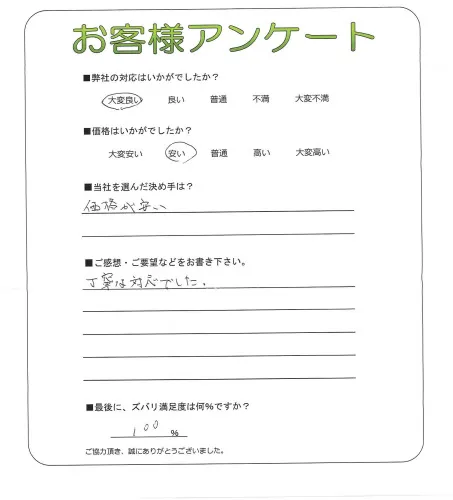 お客様アンケート
■弊社の対応はいかがでしたか？
大変良い 良い 普通 不満 大変不満
■価格はいかがでしたか？
大変安い 安い 普通 高い 大変高い
■当社を選んだ決め手は？
価格が安い
■ご感想・ご要望などをお書き下さい。
丁寧な対応でした。
■最後に、ズバリ満足度は何%ですか？
100 %
ご協力頂き、誠にありがとうございました。